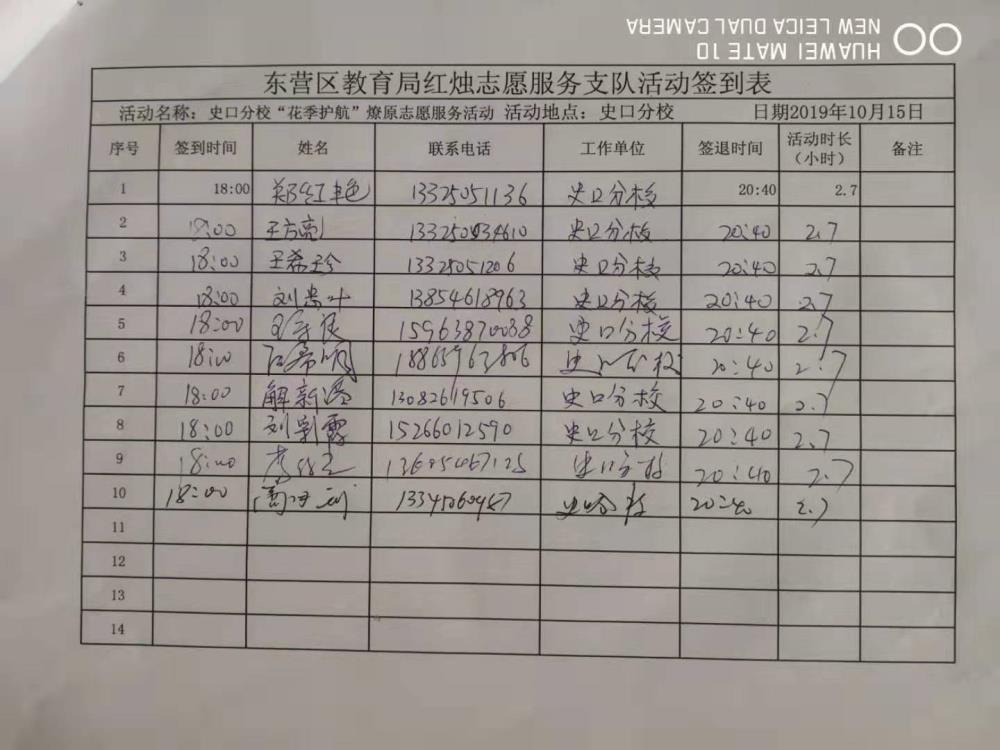 HUAWEI MATE 10
NEW LEICA DUAL CAMERA
东营区教育局红烛志愿服务支队活动签到表
活动名称：史口分校“花季护航”燎原志愿服务活动 活动地点：史口分校 日期2019年10月15日
序号 签到时间 姓名 联系电话 工作单位 签退时间 活动时长（小时） 备注
1 18:00 郑红艳 13325051136 史口分校 20:40 2.7
2 18:00 王方亮 史口分校 20:40 2.7
3 18:00 王希玲 13325051206 史口分校 20:40 2.7
4 18:00 刘贵叶 13854618963 史口分校 20:40 2.7
5 18:00 15963870038 史口分校 20:40 2.7
6 18:00 史口分校 20:40 2.7
7 18:00 13082619506 史口分校 20:40 2.7
8 18:00 刘彩霞 15266012590 史口分校 20:40 2.7
9 18:00 史口分校 20:40 2.7
10 18:00 史口分校 20:40 2.7
11
12
13
14